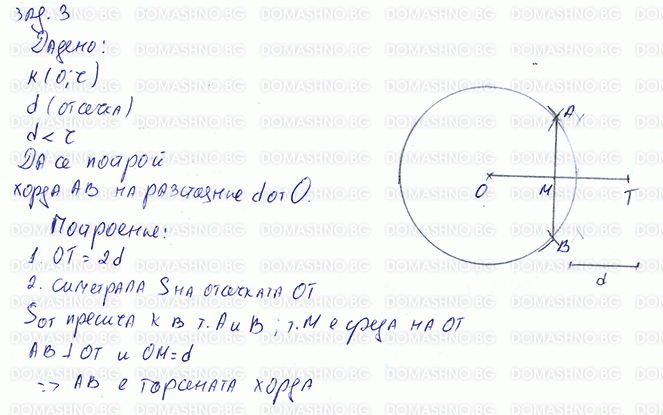 зад. 3
Дадено:
k(O; r)
d (отсечка)
d < r
Да се построй
хорда AB на разстояние d от O.
Построение:
1. OT = 2d
2. симетрала S на отсечката OT
SOT пресича k в т. A и B ; т. M е среда на OT
AB ⊥ OT и OM = d
=> AB е търсената хорда
A
O
M
T
B
d
DOMASHNO.BG